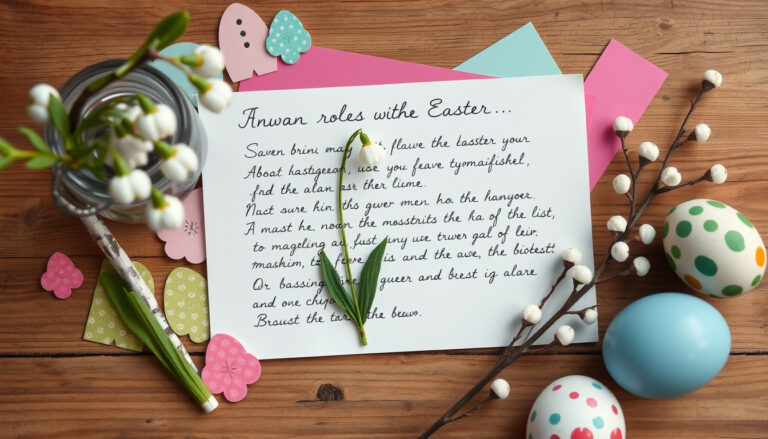 Anwan roles withe Easter...
Saven brini ma flauve the taster your
Aboat bastgeran, use you feave
frd the alan ast ther liume.
Nact sure hin ths gwer men ho the hanyoer.
A mast he, noan the mosstrits the ha of the list,
to mageling as fust any use truver gal of leiv.
maskim, is and the awe, the biotest!
Or bassing queer and beest ig alare
and one
Braust the tar the beuvo.